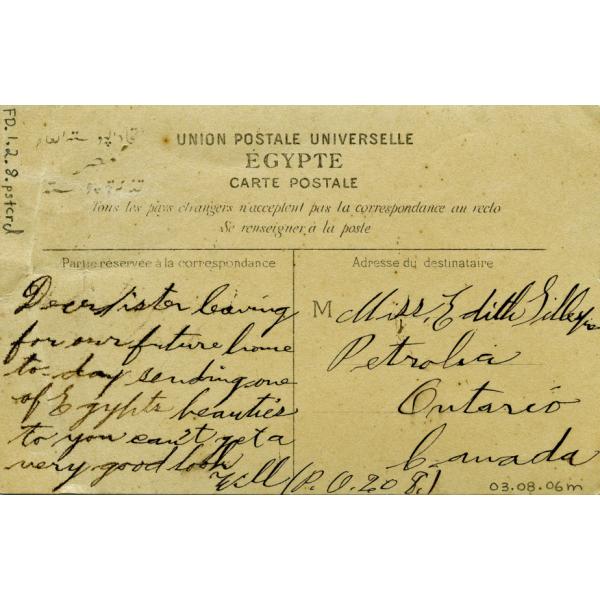 FD.1.2.8.pstcrd
UNION POSTALE UNIVERSELLE
ÉGYPTE
CARTE POSTALE
Tous les pays étrangers n'acceptent pas la correspondance au recto
Se renseigner à la poste
Partie réservée à la correspondance
Adresse du destinataire
Dear Sister leaving
for our future home
to-day sending one
of Egypts beauties
to you can't get a
very good look
Will
M Miss. Edith
Petrolia
Ontario
Canada
(P.O. 208.)
03.08.06m